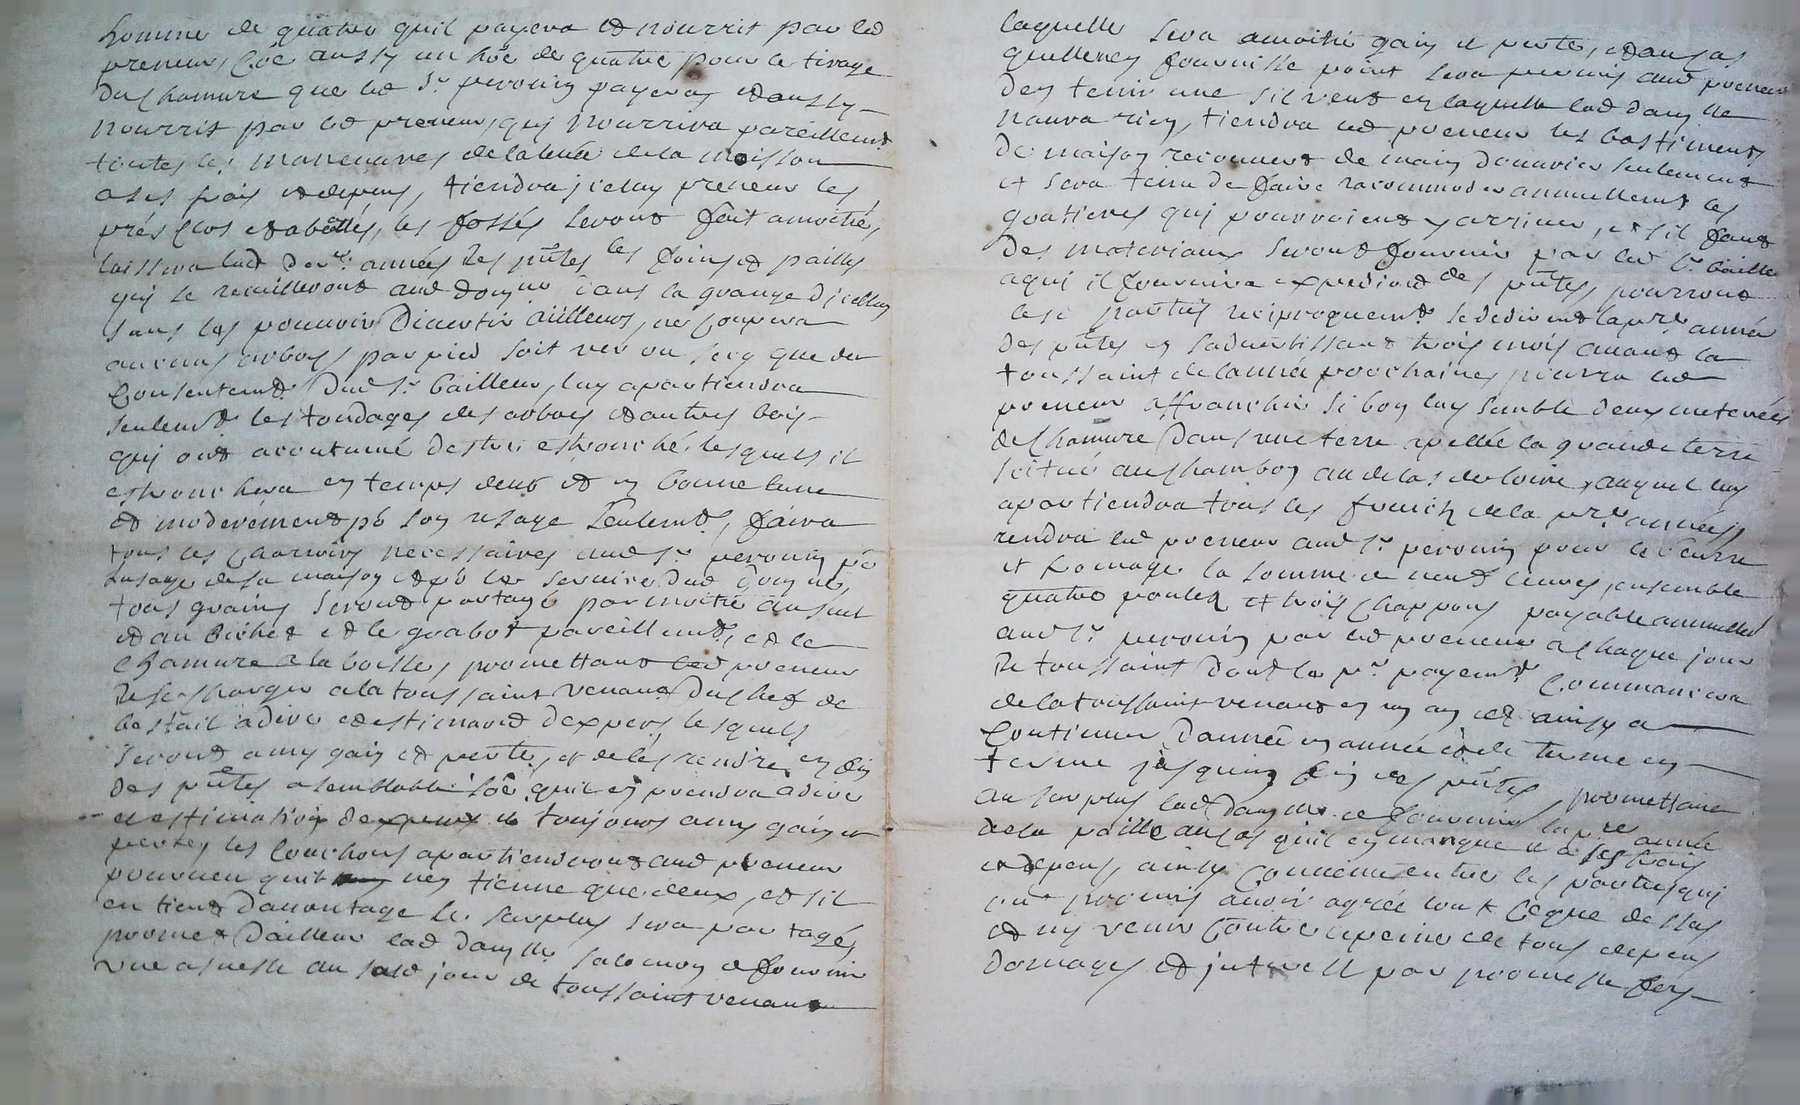 homme de quatre quil payera et nourrit par led
preneur, Coe aussy un hoe de quatre pour le tirage
du Chamure que led Sr peronin payera et aussy
nourrit par led preneur, qui Nourrira pareillemt
toutes les manoeuvres de la levée de la moisson
a ses frais et depens, tiendra jceluy preneur les
prés Clos et abellés, les fossés seront fait a moitié,
laissera lad derre année des pntes les foins et pailles
qui se recuilleront aud domne dans la grange dicelluy
sans les pouvoir divertir ailleurs, ne Coupera
aucuns arbres par pied soit ver ou secq que du
Consentemt dud Sr bailleur, luy apartiendra
seulemt les tondages des arbres et autres bois
qui ont acoutumé destre estronché lesquels il
estronchera en temps deub et en bonne lune
et moderement po son usage seulemt, faira
tous les Charrois necessaires aud Sr peronin po
lusage de sa maison et po le service dud domne,
tous grains seront partagé par moitié au suel
et au bichet et le grabot pareillemt, et le
Chamure a la boille, promettant led preneur
de se charger a la toussaint venant du Chef de
bestail a dire et estimaõn dexpers, lesquels
seront a my gain et perte, et de les rendre en fin
des pntes a semblable soe quil en prendra a dire
et estimation dexpers et toujours a my gain et
pertes, les Couchons apartiendront aud preneur
pourveu quil nen tienne que deux, et sil
en tient davantage le surplus sera partagé,
promet dailleur lad damlle salomon de fournir
une asnesse au susd jour de toussaint venant
laquelle sera a moitié gain et perte, et au cas
quelle nen fournisse point sera permis aud preneur
den tenir une sil veut en laquelle lad damlle
naura rien, tiendra led preneur les bastiments
de maison recouvert de main douvrier seulement
et sera tenu de faire racommoder annuellemt les
goutieres qui pourroient y arriver, et sil faut
des materiaux seront fournir par led Sr baille
a qui il fournira expediõn des pntes, pourront
lesd parties reciproquemt se dedire et la pre année
des pntes en sadvertissant trois mois avant la
toussaint de lannée prochaine, pourra led
preneur affranchir si bon luy semble deux meterées
de Chamure dans une terre apellée la grande terre
scitué au Chambon au dela de loire, auquel luy
apartiendra tous les fruich de la pre année,
rendra led preneur aud Sr peronin pour le beurre
et fromage la somme de neuf livres, ensemble
quatre poulets et trois Chappons payable annuellemt
aud Sr peronin par led preneur a Chaque jour
de toussaint dont le pr payemt Commancera
de la toussaint venant en un an et ainsy a
Continuer dannée en année et de terme en
terme jusquen fin des pntes, promettant
au surplus lad damlle de fournir la pre année
de la paille au cas quil en manque et a ses frais
et depens, ainsy Convenu entre les parties qui
ont promis avoir agrée tout Ceque dessus
et ny venir Contre a peine de tous depens
domages et jnterest par promesse fers